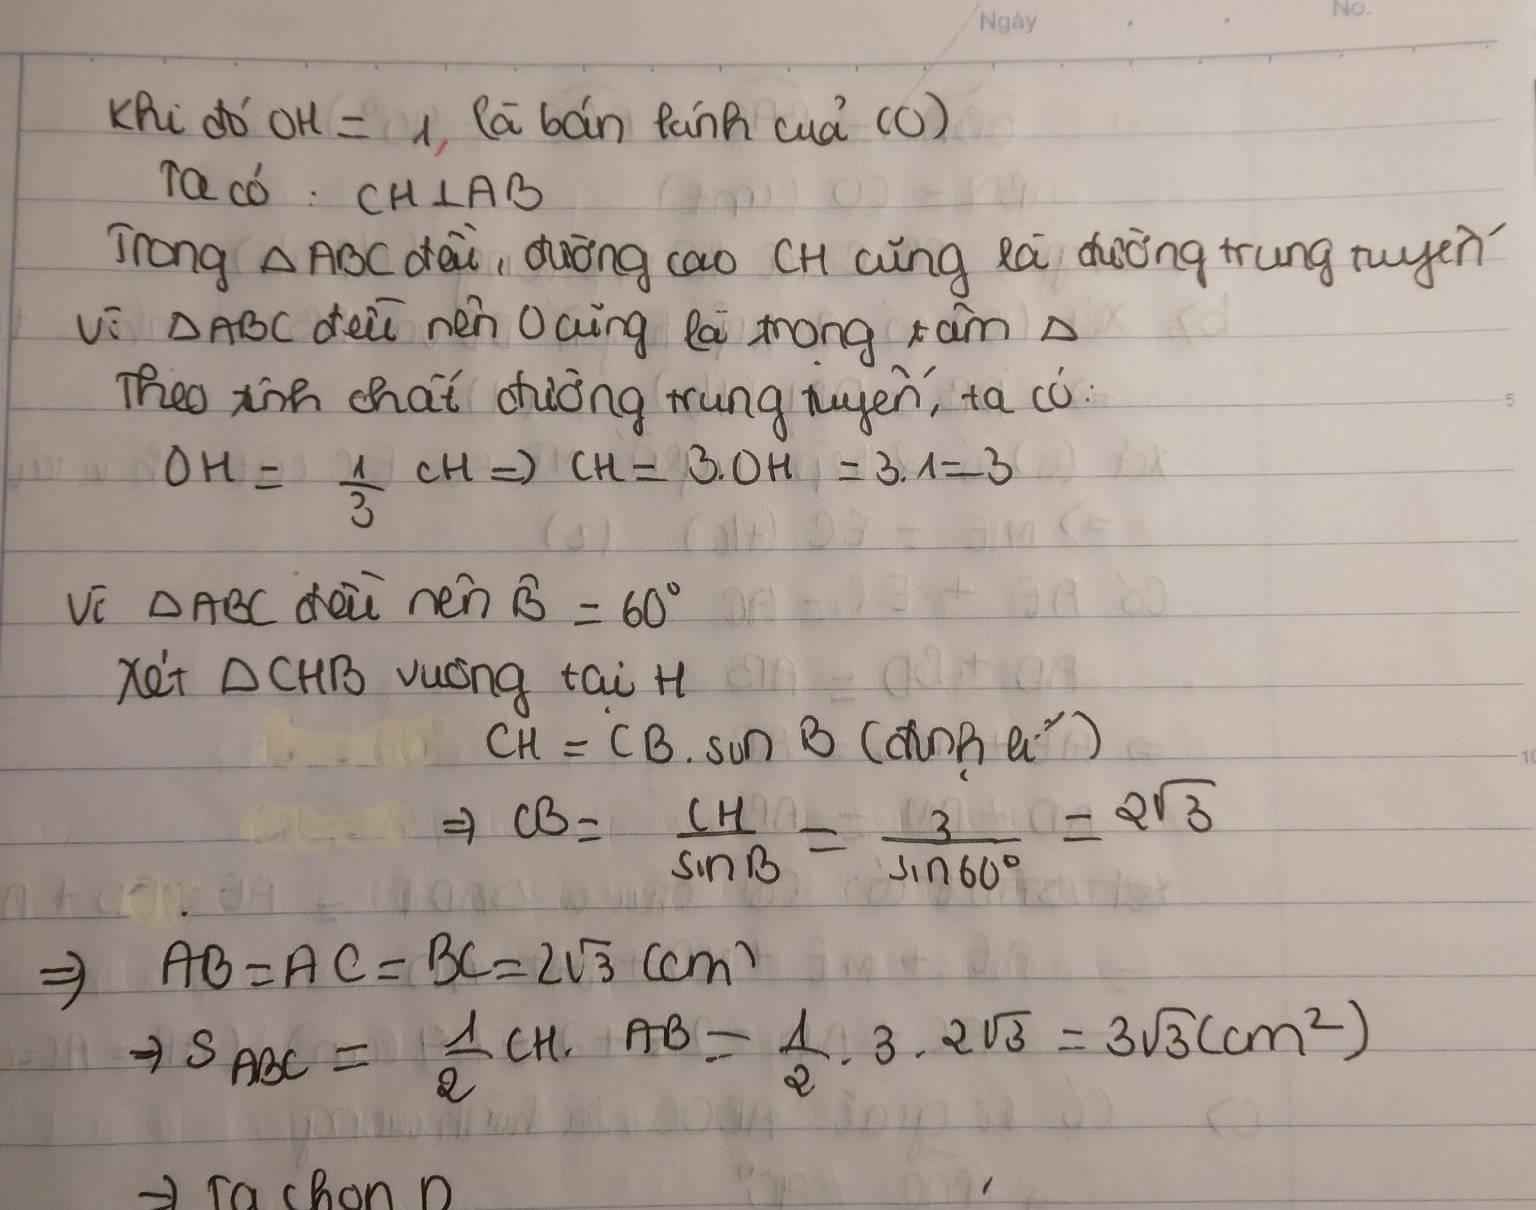 Ngày
No.
Khi đó OH = 1, là bán kính cuả (O)
Ta có : CH ⊥ AB
Trong △ ABC đều, đường cao CH cũng là đường trung tuyến
Vì △ABC đều nên O cũng là trọng tâm △
Theo tính chất đường trung tuyến, ta có:
OH = 1/3 CH => CH = 3.OH = 3.1=3
5
Vì △ABC đều nên B̂ = 60°
Xét △CHB vuông tại H
CH = CB. sin B (định lí)
10
=> CB = CH/sinB = 3/sin60° = 2√3
=> AB = AC = BC = 2√3 (cm)
=> S ABC = 1/2 CH. AB = 1/2 . 3 . 2√3 = 3√3 (cm²)
=> Ta chọn D